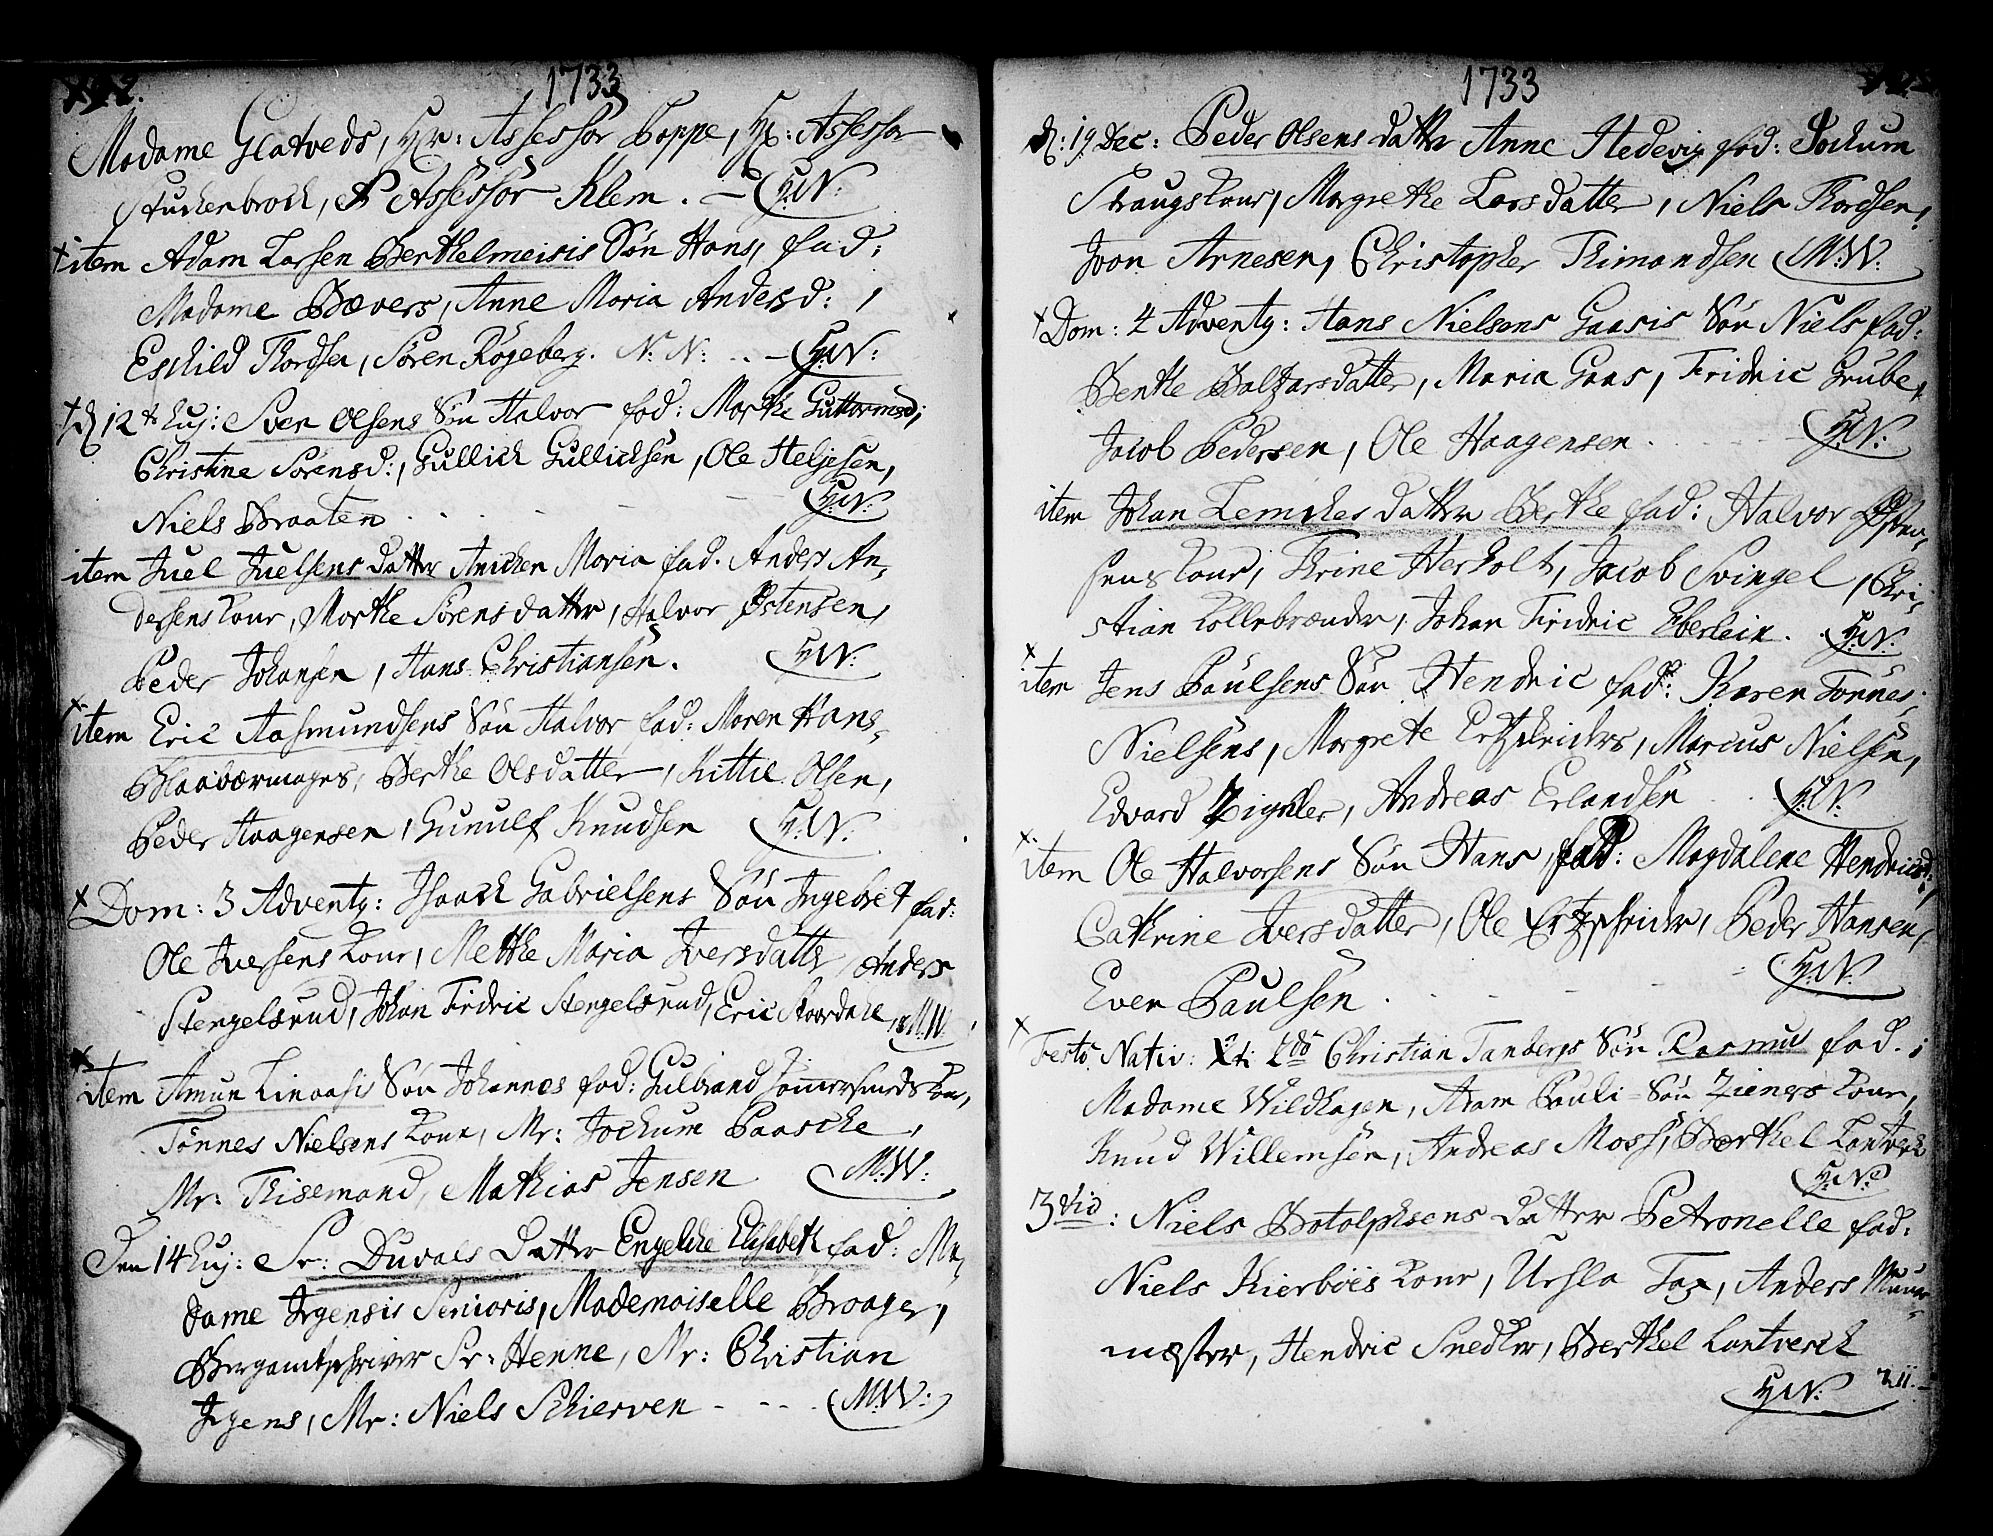 1733
Madame Glatveds, Hr: Assessor Poppe, Hr: Assessor
Stuckenbrock, Assessor Klem. H:W:
item Adam Larsen Berthelmeisis Søn Hans, fad:
Madame Bævers, Anne Maria Andersd:,
Eschild Thordsen, Sören Rögeberg. N: N: H:W:
d 12t huj: Sven Olsens Sön Halvor fad: Marthe Guttormsd;
Christine Sörensd:, Gullich Gullichsen, Ole Heljesen,
Niels Braaten H:W:
item Juel Juelsens datter Anichen Maria fad. Anders An-
dersens Konr, Marthe Sörensdatter, Halvor Østensen,
Peder Johansen, Hans Christiansen. H:W:
item Eric Aasmundsens Sön Halvor fad: Maren Hans-
Blaabærmages, Berthe Olsdatter, Kittil Olsen,
Peder Haagensen, Gunulf Knudsen H:W:
Dom: 3 Advent: Isaach Gabrielsens Sön Ingebret fad:
Ole Iversens Konr, Mette Maria Iversdatter, Anders
Stengelsrud, Johan Fridric Stengelsrud, Eric M:W:
item Amun Linaasis Sön Johannes fad: Gulbrand Kone,
Tönnes Nielsens Konr, Mr: Jochum Paasche,
Mr: Thisemand, Mathias Jensen M:W:
Den 14 huj: Sr: Duvals Datter Engelche Elisabeth fad: Ma-
dame Irgensis Senioris, Mademoiselle Broager,
Bergamtschriver Sr: Henne, Mr: Christian
Irgens, Mr: Niels Schierven M:W:
1733
d: 19 Dec: Peder Olsens datter Anne Hedevig fad: Jochum
Straugs Konr, Margrethe Larsdatter, Niels Thordsen,
Joon Arnesen, Christopher Thimandsen M:W:
Dom: 4 Advent: Hans Nielsens Gaasis Sön Niels fad:
Benthe Baltzarsdatter, Maria Gaas, Fridric Grube,
Jacob Pedersen, Ole Haagensen H:W:
item Johan Lemches datter Berthe fad: Halvor Østen-
sens Konr, Thrine Herholt, Jacob Svingel, Chri-
stian Kollebrænder, Johan Fridric Eberlein. H:W:
item Jens Paulsens Sön Hendric fad: Karen Tönnes
Nielsens, Margrete Ertzdriders, Marcus Nielsen,
Edvard Zigler, Andreas Erlandsen H:W:
item Ole Halvorsens Sön Hans, fad: Magdalene Hendricsd:,
Cathrine Iversdatter, Ole Ertzschrider, Peder Hansen,
Even Paulsen H:W:
Festo Nativ: Xti 2do Christian Tanbergs Sön Rasmus fad.;
Madame Wildhagen, Adam Pauli-Sön Ziengs Konr,
Knud Willemsen, Andreas Moss, Berthel Lantverk
H:W:
3tio: Niels Botolphsens datter Petronelle fad:
Niels Kierböes Konr, Ursla Tax, Anders Muur-
mæster, Hendric Snedker, Berthel Lantverck
H:W: